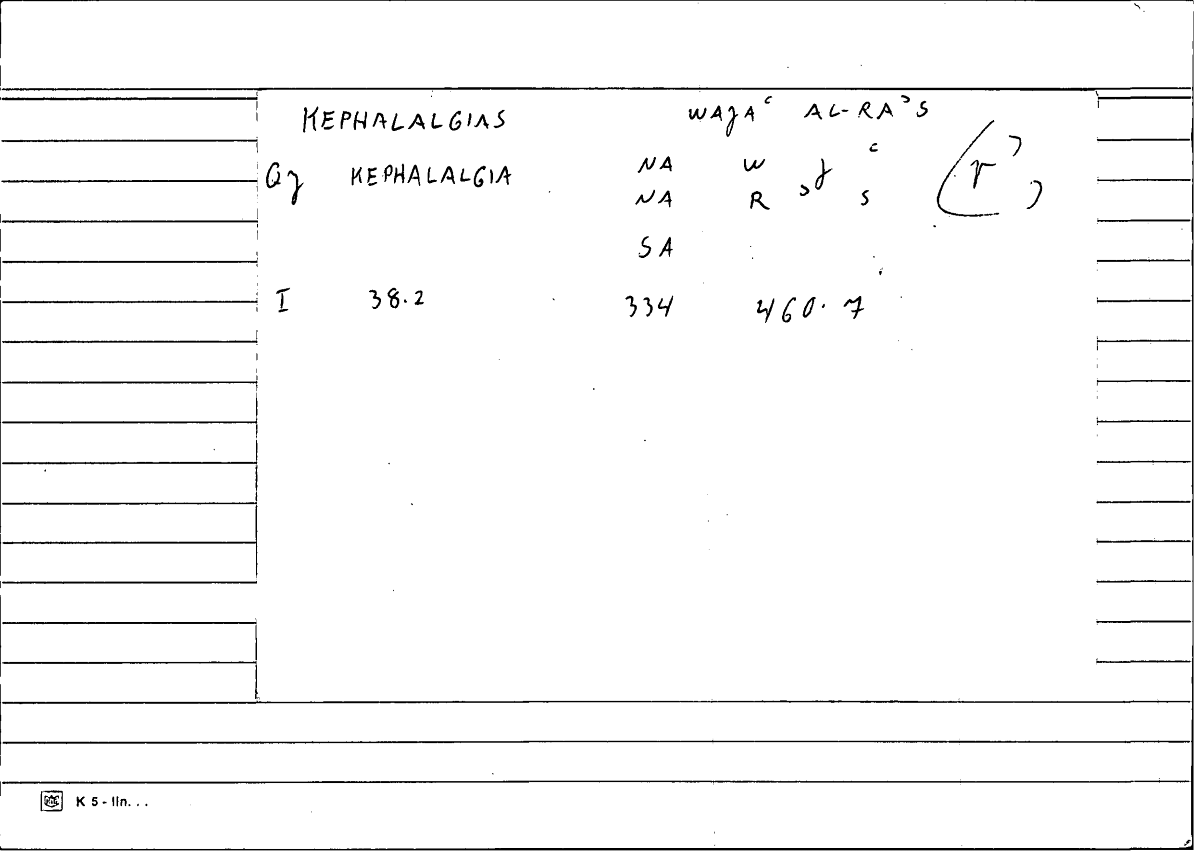 KEPHALALGIAS WAJAʿ AL-RAʾS
QJ KEPHALALGIA NA W J ʿ
NA R ʾ S
SA
I 38.2 334 460.7
K 5 - lin. . .